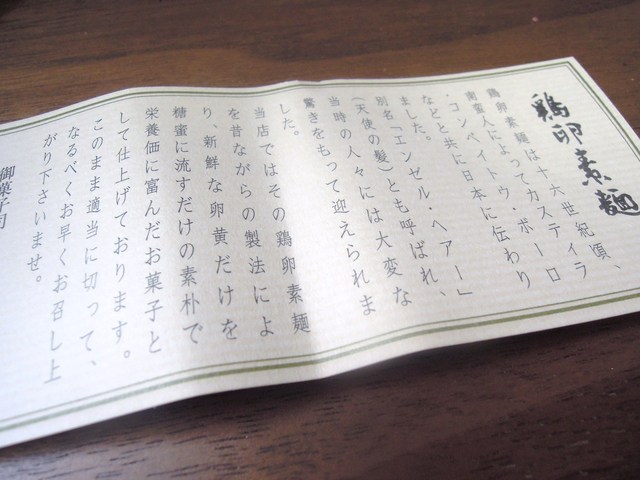 鶏卵素麺
鶏卵素麺は十六世紀頃、
南蛮人によってカスティラ
・コンペイトウ・ボーロ
などと共に日本に伝わり
ました。
別名「エンゼル・ヘアー」
(天使の髪)とも呼ばれ、
当時の人々には大変な
驚きをもって迎えられま
した。
当店ではその鶏卵素麺
を昔ながらの製法によ
り、新鮮な卵黄だけを
糖蜜に流すだけの素朴で
栄養価に富んだお菓子と
して仕上げております。
このまま適当に切って、
なるべくお早くお召し上
がり下さいませ。
御菓子司